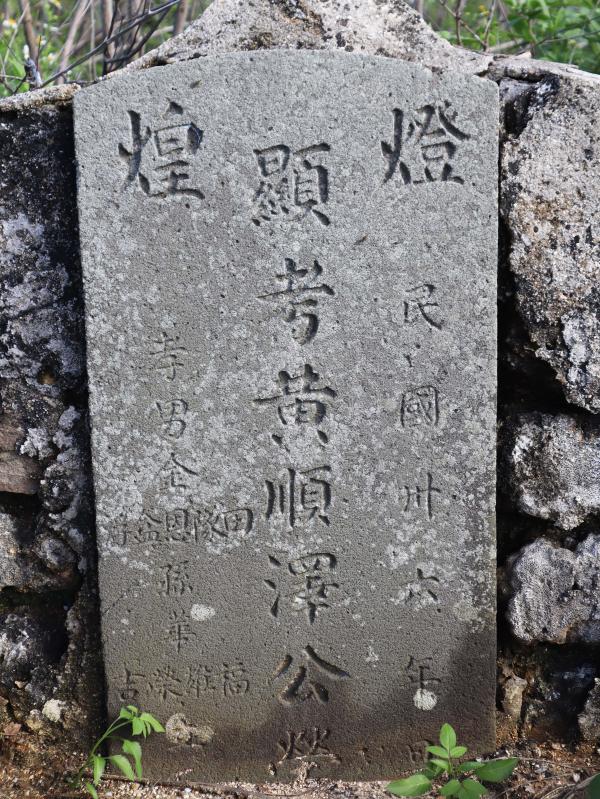 燈煌
民國卅六年
顯考黃順澤公塋
孝男金
田恩益
孫華
福雄榮吉
立